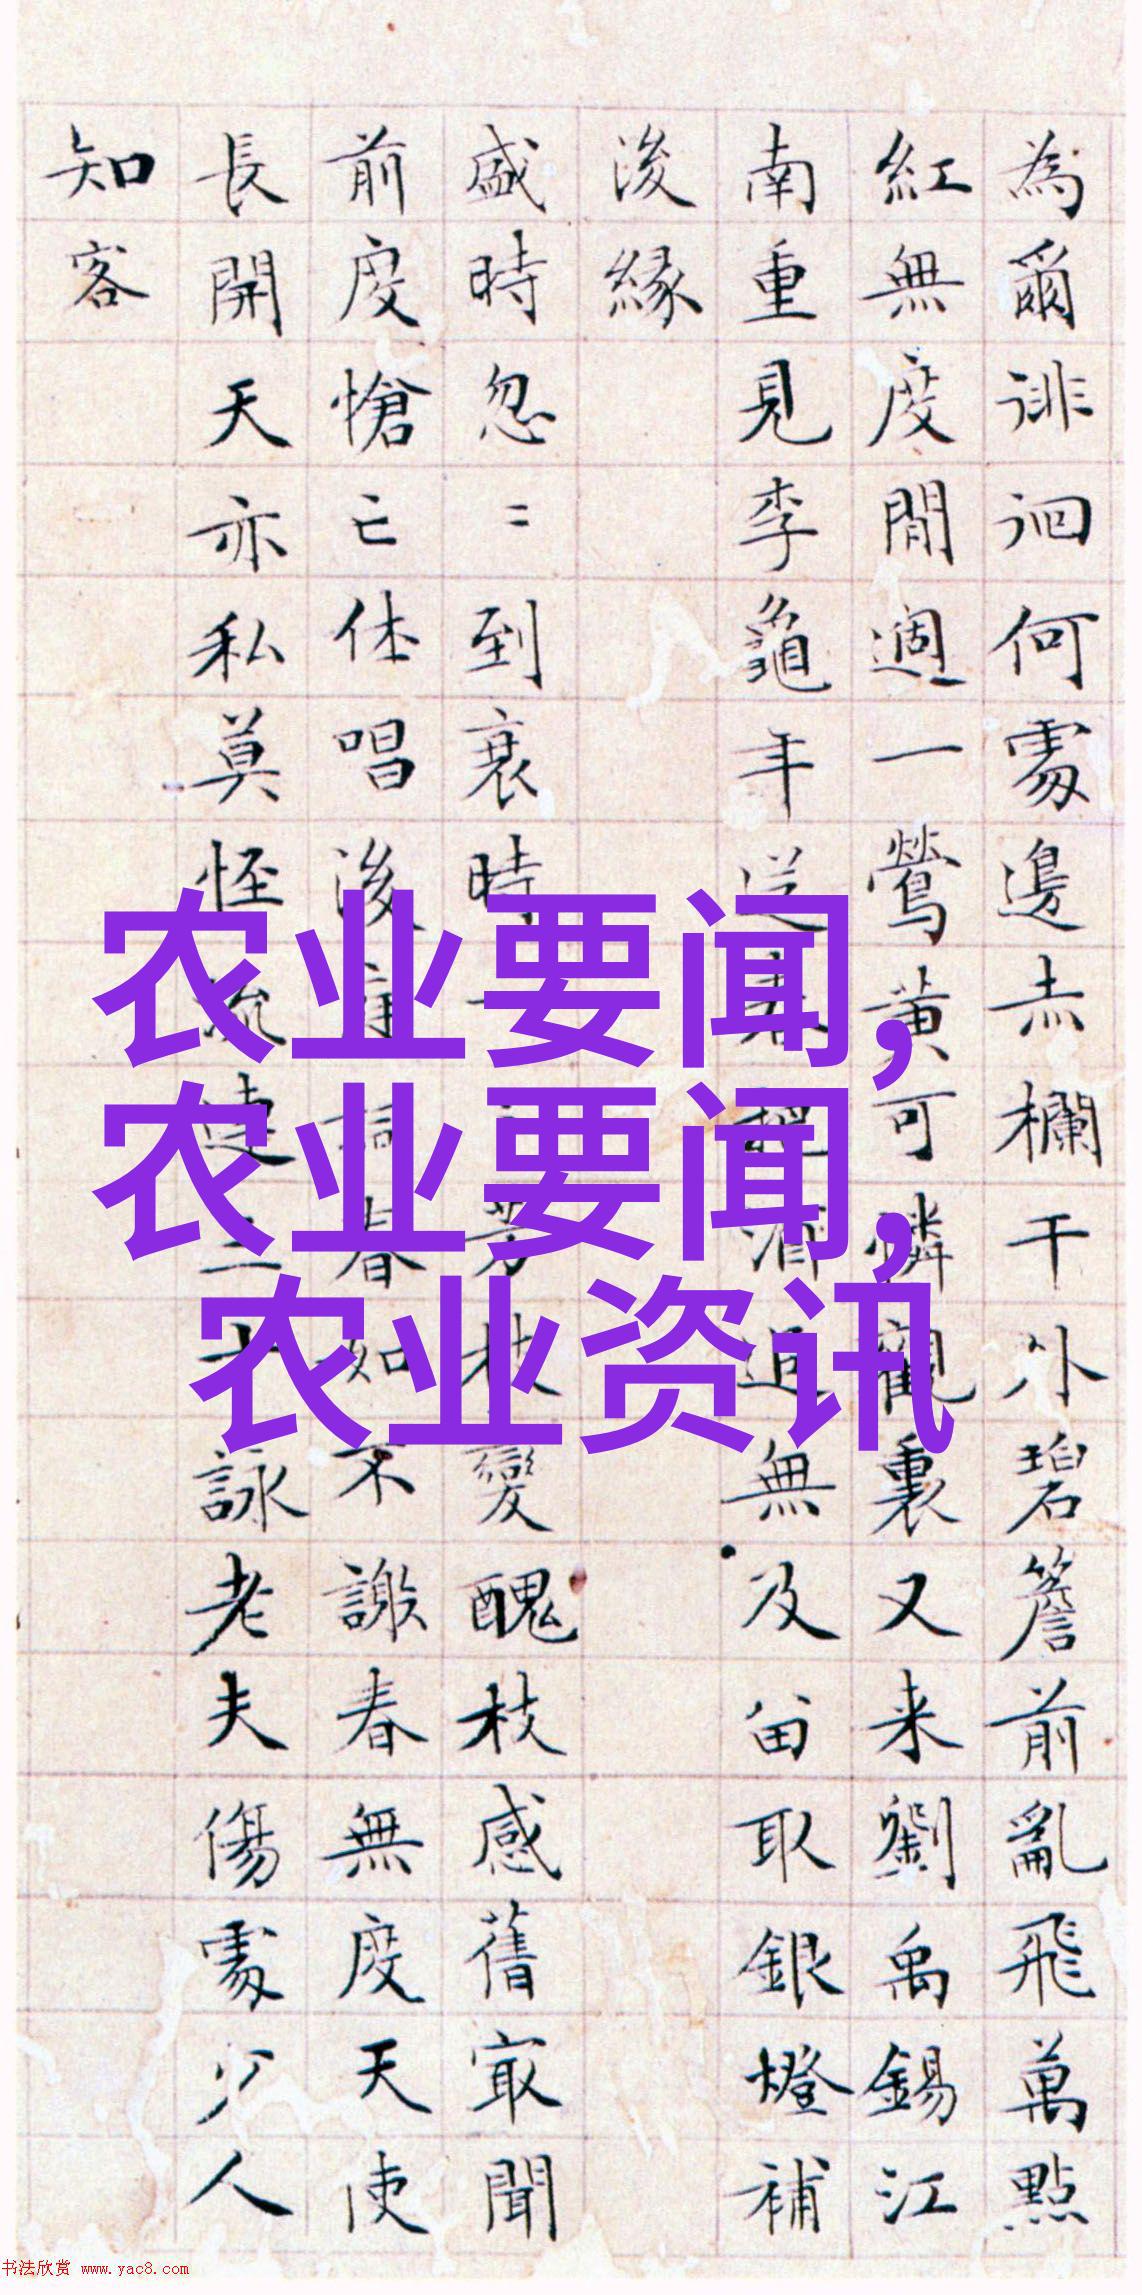 為爾徘徊何處邊赤欄干外碧簷前亂飛萬點
紅無度閒過一鶯黃可憐觀裏又来劉禹錫江
南重見李龜年送春酒追無及留取銀燈補
後緣
盛時忽〻到衰時一芳枝變醜枝感舊最聞
前度愴亡休唱後庭詞春如不謝春無度天使
長開天亦私莫怪流連三十詠老夫傷處少人
知客
农业要闻,
农业要闻,
农业资讯
书法欣赏 www.yac8.com